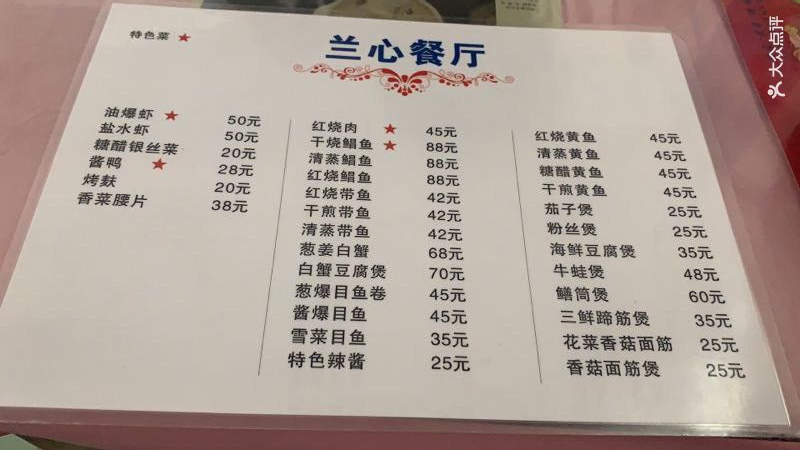 特色菜 ★
兰心餐厅
油爆虾 ★ 50元
盐水虾 50元
糖醋银丝菜 20元
酱鸭 ★ 28元
烤麸 20元
香菜腰片 38元
红烧肉 ★ 45元
干烧鲳鱼 ★ 88元
清蒸鲳鱼 88元
红烧鲳鱼 88元
红烧带鱼 42元
干煎带鱼 42元
清蒸带鱼 42元
葱姜白蟹 68元
白蟹豆腐煲 70元
葱爆目鱼卷 45元
酱爆目鱼 45元
雪菜目鱼 35元
特色辣酱 25元
红烧黄鱼 45元
清蒸黄鱼 45元
糖醋黄鱼 45元
干煎黄鱼 45元
茄子煲 25元
粉丝煲 25元
海鲜豆腐煲 35元
牛蛙煲 48元
鳝筒煲 60元
三鲜蹄筋煲 35元
花菜香菇面筋 25元
香菇面筋煲 25元
大众点评